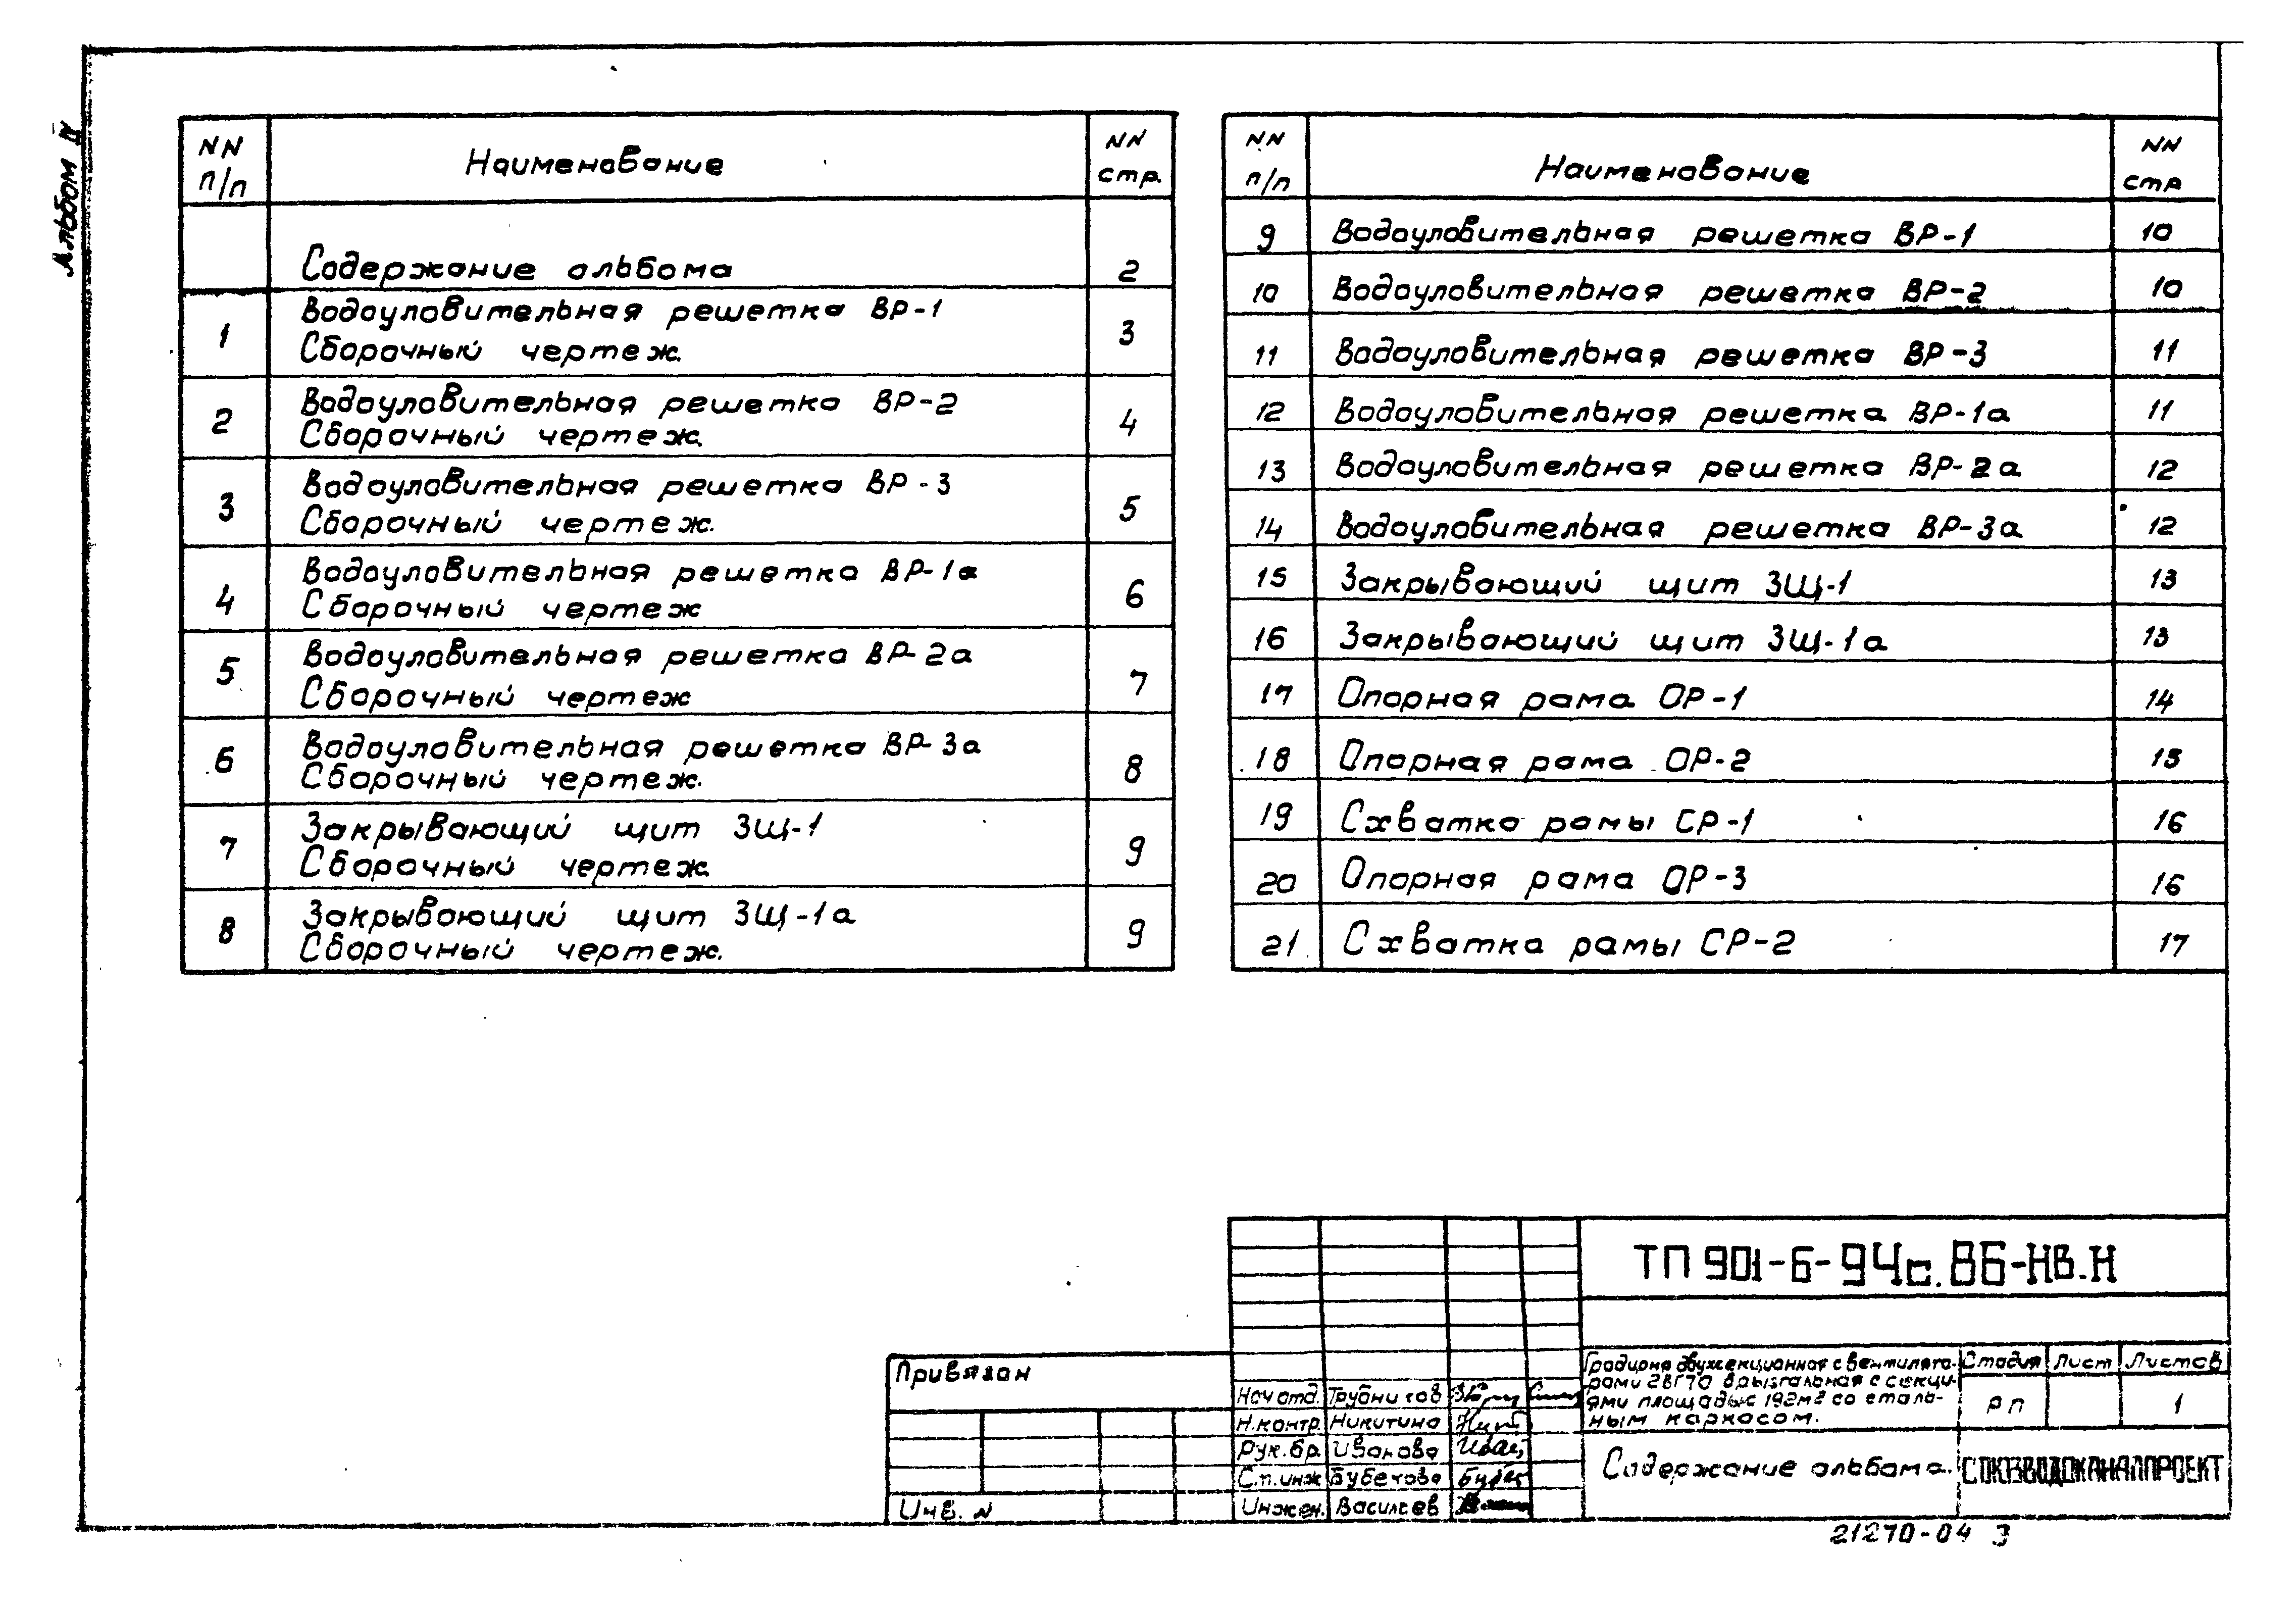 Альбом IV
NN п/п Наименование NN стр.
Содержание альбома 2
1 Водоуловительная решетка ВР-1 3
Сборочный чертеж.
2 Водоуловительная решетка ВР-2 4
Сборочный чертеж.
3 Водоуловительная решетка ВР-3 5
Сборочный чертеж.
4 Водоуловительная решетка ВР-1а 6
Сборочный чертеж
5 Водоуловительная решетка ВР-2а 7
Сборочный чертеж
6 Водоуловительная решетка ВР-3а 8
Сборочный чертеж.
7 Закрывающий щит ЗЩ-1 9
Сборочный чертеж.
8 Закрывающий щит ЗЩ-1а 9
Сборочный чертеж.
NN п/п Наименование NN стр
9 Водоуловительная решетка ВР-1 10
10 Водоуловительная решетка ВР-2 10
11 Водоуловительная решетка ВР-3 11
12 Водоуловительная решетка ВР-1а 11
13 Водоуловительная решетка ВР-2а 12
14 Водоуловительная решетка ВР-3а 12
15 Закрывающий щит ЗЩ-1 13
16 Закрывающий щит ЗЩ-1а 13
17 Опорная рама ОР-1 14
18 Опорная рама ОР-2 15
19 Схватка рамы СР-1 16
20 Опорная рама ОР-3 16
21 Схватка рамы СР-2 17
ТП 901-6-94с.86-НВ.Н
Привязан
Инв. N
Нач отд. Трубников
Н.контр. Никитина
Рук.бр. Иванова
Ст.инж Бубекова
Инжен. Васильев
Градирня двухсекционная с вентилято-
рами 2ВГ70 брызгальная с секци-
ями площадью 192м² со сталь-
ным каркасом.
Стадия Лист Листов
РП 1
Содержание альбома.
СОЮЗВОДОКАНАЛПРОЕКТ
21270-04 3